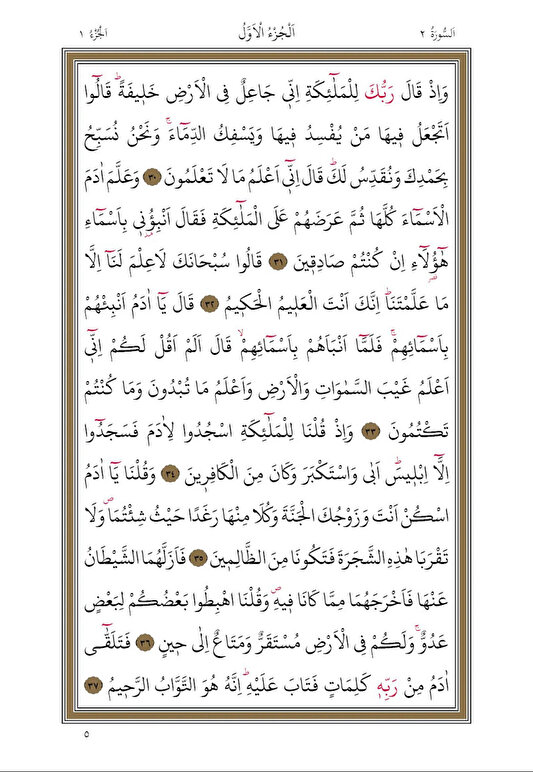 اَلسُّورَةُ ٢ اَلْجُزْءُ الْاَوَّلُ اَلْجُزْءُ ١
وَاِذْ قَالَ رَبُّكَ لِلْمَلٰٓئِكَةِ اِنّ۪ي جَاعِلٌ فِي الْاَرْضِ خَل۪يفَةًۜ قَالُٓوا
اَتَجْعَلُ ف۪يهَا مَنْ يُفْسِدُ ف۪يهَا وَيَسْفِكُ الدِّمَٓاءَۚ وَنَحْنُ نُسَبِّحُ
بِحَمْدِكَ وَنُقَدِّسُ لَكَۜ قَالَ اِنّ۪ٓي اَعْلَمُ مَا لَا تَعْلَمُونَ ٣٠ وَعَلَّمَ اٰدَمَ
الْاَسْمَٓاءَ كُلَّهَا ثُمَّ عَرَضَهُمْ عَلَى الْمَلٰٓئِكَةِ فَقَالَ اَنْبِؤُ۫ن۪ي بِاَسْمَٓاءِ
هٰٓؤُ۬لَٓاءِ اِنْ كُنْتُمْ صَادِق۪ينَ ٣١ قَالُوا سُبْحَانَكَ لَا عِلْمَ لَنَٓا اِلَّا
مَا عَلَّمْتَنَاۜ اِنَّكَ اَنْتَ الْعَل۪يمُ الْحَك۪يمُ ٣٢ قَالَ يَٓا اٰدَمُ اَنْبِئْهُمْ
بِاَسْمَٓائِهِمْۚ فَلَمَّٓا اَنْبَاَهُمْ بِاَسْمَٓائِهِمْۙ قَالَ اَلَمْ اَقُلْ لَكُمْ اِنّ۪ٓي
اَعْلَمُ غَيْبَ السَّمٰوَاتِ وَالْاَرْضِ وَاَعْلَمُ مَا تُبْدُونَ وَمَا كُنْتُمْ
تَكْتُمُونَ ٣٣ وَاِذْ قُلْنَا لِلْمَلٰٓئِكَةِ اسْجُدُوا لِاٰدَمَ فَسَجَدُٓوا
اِلَّٓا اِبْل۪يسَۜ اَبٰى وَاسْتَكْبَرَ وَكَانَ مِنَ الْكَافِر۪ينَ ٣٤ وَقُلْنَا يَٓا اٰدَمُ
اسْكُنْ اَنْتَ وَزَوْجُكَ الْجَنَّةَ وَكُلَا مِنْهَا رَغَدًا حَيْثُ شِئْتُمَاۖ وَلَا
تَقْرَبَا هٰذِهِ الشَّجَرَةَ فَتَكُونَا مِنَ الظَّالِم۪ينَ ٣٥ فَاَزَلَّهُمَا الشَّيْطَانُ
عَنْهَا فَاَخْرَجَهُمَا مِمَّا كَانَا ف۪يهِۖ وَقُلْنَا اهْبِطُوا بَعْضُكُمْ لِبَعْضٍ
عَدُوٌّۚ وَلَكُمْ فِي الْاَرْضِ مُسْتَقَرٌّ وَمَتَاعٌ اِلٰى ح۪ينٍ ٣٦ فَتَلَقّٰٓى
اٰدَمُ مِنْ رَبِّه۪ كَلِمَاتٍ فَتَابَ عَلَيْهِۜ اِنَّهُ هُوَ التَّوَّابُ الرَّح۪يمُ ٣٧
٥